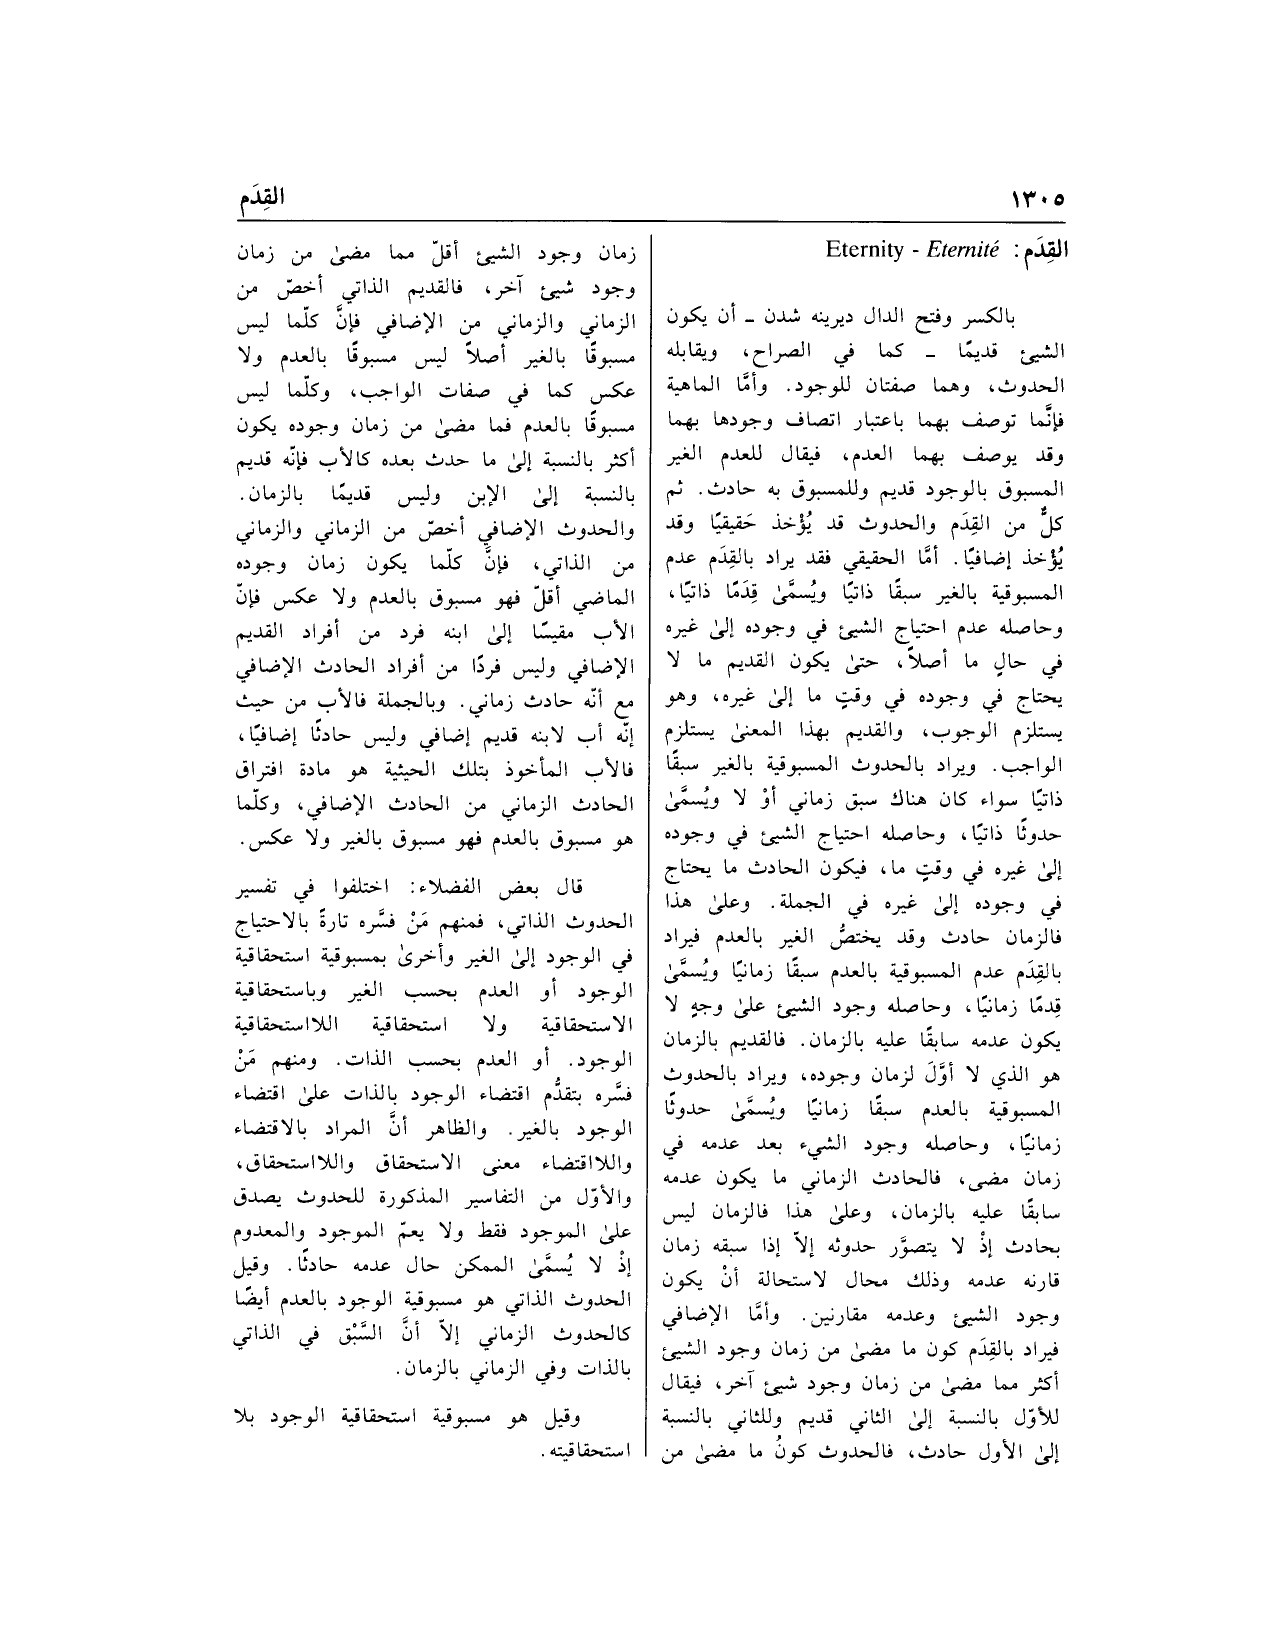 ١٣٠٥
القِدَم
القِدَم : Eternity - Eternité
بالكسر وفتح الدال ديرينه شدن ـ أن يكون
الشيئ قديمًا ـ كما في الصراح، ويقابله
الحدوث، وهما صفتان للوجود. وأمَّا الماهية
فإنَّما توصف بهما باعتبار اتصاف وجودها بهما
وقد يوصف بهما العدم، فيقال للعدم الغير
المسبوق بالوجود قديم وللمسبوق به حادث. ثم
كلٌّ من القِدَم والحدوث قد يُؤْخذ حَقيقيًا وقد
يُؤْخذ إضافيًا. أمَّا الحقيقي فقد يراد بالقِدَم عدم
المسبوقية بالغير سبقًا ذاتيًا ويُسمَّىٰ قِدَمًا ذاتيًا،
وحاصله عدم احتياج الشيئ في وجوده إلىٰ غيره
في حالٍ ما أصلاً، حتىٰ يكون القديم ما لا
يحتاج في وجوده في وقتٍ ما إلىٰ غيره، وهو
يستلزم الوجوب، والقديم بهذا المعنىٰ يستلزم
الواجب. ويراد بالحدوث المسبوقية بالغير سبقًا
ذاتيًا سواء كان هناك سبق زماني أوْ لا ويُسمَّىٰ
حدوثًا ذاتيًا، وحاصله احتياج الشيئ في وجوده
إلىٰ غيره في وقتٍ ما، فيكون الحادث ما يحتاج
في وجوده إلىٰ غيره في الجملة. وعلىٰ هذا
فالزمان حادث وقد يختصُّ الغير بالعدم فيراد
بالقِدَم عدم المسبوقية بالعدم سبقًا زمانيًا ويُسمَّىٰ
قِدمًا زمانيًا، وحاصله وجود الشيئ علىٰ وجهٍ لا
يكون عدمه سابقًا عليه بالزمان. فالقديم بالزمان
هو الذي لا أوَّلَ لزمان وجوده، ويراد بالحدوث
المسبوقية بالعدم سبقًا زمانيًا ويُسمَّىٰ حدوثًا
زمانيًا، وحاصله وجود الشيء بعد عدمه في
زمان مضى، فالحادث الزماني ما يكون عدمه
سابقًا عليه بالزمان، وعلىٰ هذا فالزمان ليس
بحادث إذْ لا يتصوَّر حدوثه إلاّ إذا سبقه زمان
قارنه عدمه وذلك محال لاستحالة أنْ يكون
وجود الشيئ وعدمه مقارنين. وأمَّا الإضافي
فيراد بالقِدَم كون ما مضىٰ من زمان وجود الشيئ
أكثر مما مضىٰ من زمان وجود شيئ آخر، فيقال
للأوّل بالنسبة إلىٰ الثاني قديم وللثاني بالنسبة
إلىٰ الأول حادث، فالحدوث كونُ ما مضىٰ من
زمان وجود الشيئ أقلّ مما مضىٰ من زمان
وجود شيئ آخر، فالقديم الذاتي أخصّ من
الزماني والزماني من الإضافي فإنَّ كلّما ليس
مسبوقًا بالغير أصلاً ليس مسبوقًا بالعدم ولا
عكس كما في صفات الواجب، وكلّما ليس
مسبوقًا بالعدم فما مضىٰ من زمان وجوده يكون
أكثر بالنسبة إلىٰ ما حدث بعده كالأب فإنّه قديم
بالنسبة إلىٰ الإبن وليس قديمًا بالزمان.
والحدوث الإضافي أخصّ من الزماني والزماني
من الذاتي، فإنَّ كلّما يكون زمان وجوده
الماضي أقلّ فهو مسبوق بالعدم ولا عكس فإنّ
الأب مقيسًا إلىٰ ابنه فرد من أفراد القديم
الإضافي وليس فردًا من أفراد الحادث الإضافي
مع أنّه حادث زماني. وبالجملة فالأب من حيث
إنّه أب لابنه قديم إضافي وليس حادثًا إضافيًا،
فالأب المأخوذ بتلك الحيثية هو مادة افتراق
الحادث الزماني من الحادث الإضافي، وكلّما
هو مسبوق بالعدم فهو مسبوق بالغير ولا عكس.
قال بعض الفضلاء: اختلفوا في تفسير
الحدوث الذاتي، فمنهم مَنْ فسَّره تارةً بالاحتياج
في الوجود إلىٰ الغير وأخرىٰ بمسبوقية استحقاقية
الوجود أو العدم بحسب الغير وباستحقاقية
الاستحقاقية ولا استحقاقية اللااستحقاقية
الوجود. أو العدم بحسب الذات. ومنهم مَنْ
فسَّره بتقدُّم اقتضاء الوجود بالذات علىٰ اقتضاء
الوجود بالغير. والظاهر أنَّ المراد بالاقتضاء
واللااقتضاء معنى الاستحقاق واللااستحقاق،
والأوّل من التفاسير المذكورة للحدوث يصدق
علىٰ الموجود فقط ولا يعمّ الموجود والمعدوم
إذْ لا يُسمَّىٰ الممكن حال عدمه حادثًا. وقيل
الحدوث الذاتي هو مسبوقية الوجود بالعدم أيضًا
كالحدوث الزماني إلاّ أنَّ السَّبْق في الذاتي
بالذات وفي الزماني بالزمان.
وقيل هو مسبوقية استحقاقية الوجود بلا
استحقاقيته.